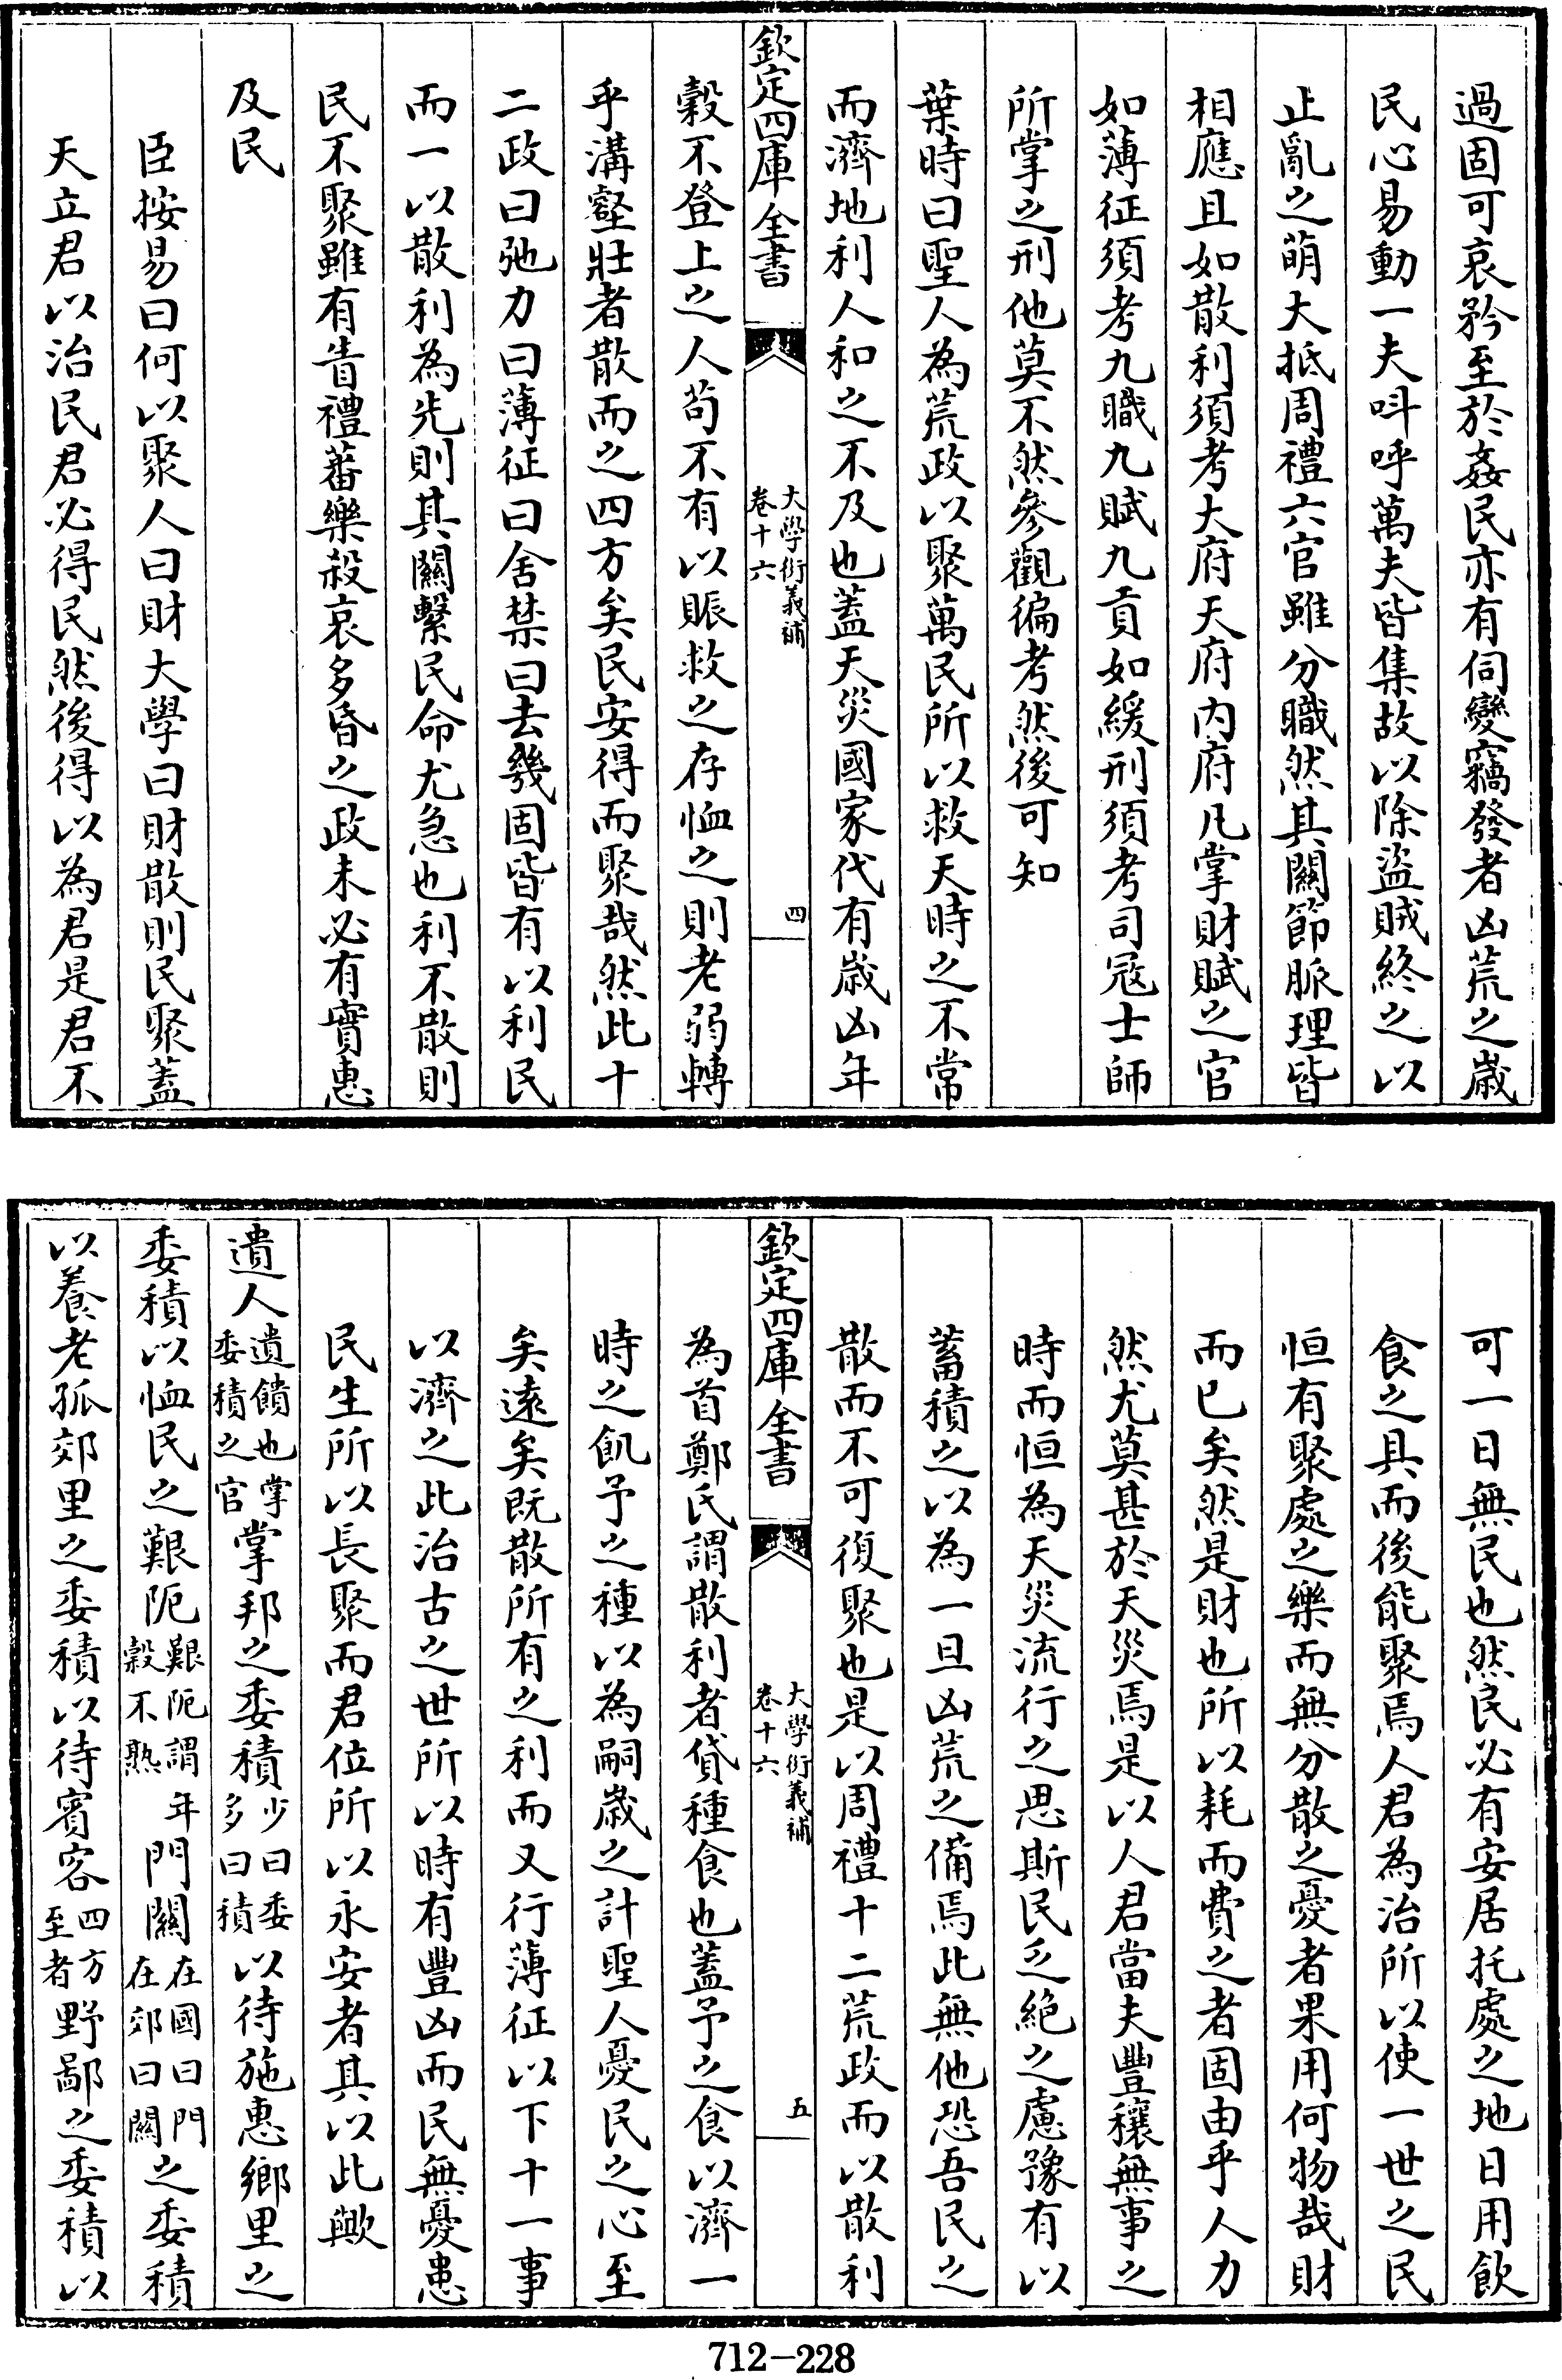 過固可哀矜至於姦民亦有伺變竊發者凶荒之歳
民心易動一夫呌呼萬夫皆集故以除盜賊終之以
止亂之萌大抵周禮六官雖分職然其闗節脈理皆
相應且如散利須考大府天府内府凡掌財賦之官
如薄征須考九職九賦九貢如緩刑須考司冦士師
所掌之刑他莫不然參觀徧考然後可知
葉時曰聖人為荒政以聚萬民所以救天時之不常
而濟地利人和之不及也蓋天災國家代有歳凶年
欽定四庫全書
大學衍義補
卷十六
四
穀不登上之人苟不有以賑救之存恤之則老弱轉
乎溝壑壯者散而之四方矣民安得而聚哉然此十
二政曰弛力曰薄征曰舍禁曰去幾固皆有以利民
而一以散利為先則其闗繫民命尤急也利不散則
民不聚雖有眚禮蕃樂殺哀多昏之政未必有實惠
及民
臣按易曰何以聚人曰財大學曰財散則民聚蓋
天立君以治民君必得民然後得以為君是君不
可一日無民也然民必有安居托處之地日用飲
食之具而後能聚焉人君為治所以使一世之民
恒有聚處之樂而無分散之憂者果用何物哉財
而已矣然是財也所以耗而費之者固由乎人力
然尤莫甚於天災焉是以人君當夫豐穰無事之
時而恒為天災流行之思斯民乏絶之慮豫有以
蓄積之以為一旦凶荒之備焉此無他恐吾民之
散而不可復聚也是以周禮十二荒政而以散利
欽定四庫全書
大學衍義補
卷十六
五
為首鄭氏謂散利者貸種食也蓋予之食以濟一
時之飢予之種以為嗣歳之計聖人憂民之心至
矣遠矣既散所有之利而又行薄征以下十一事
以濟之此治古之世所以時有豐凶而民無憂患
民生所以長聚而君位所以永安者其以此歟
遺人遺饋也掌委積之官掌邦之委積少曰委多曰積以待施惠鄉里之
委積以恤民之艱阨艱阨謂年穀不熟門闗在國曰門在郊曰闗之委積
以養老孤郊里之委積以待賓客四方至者野鄙之委積以
712-228